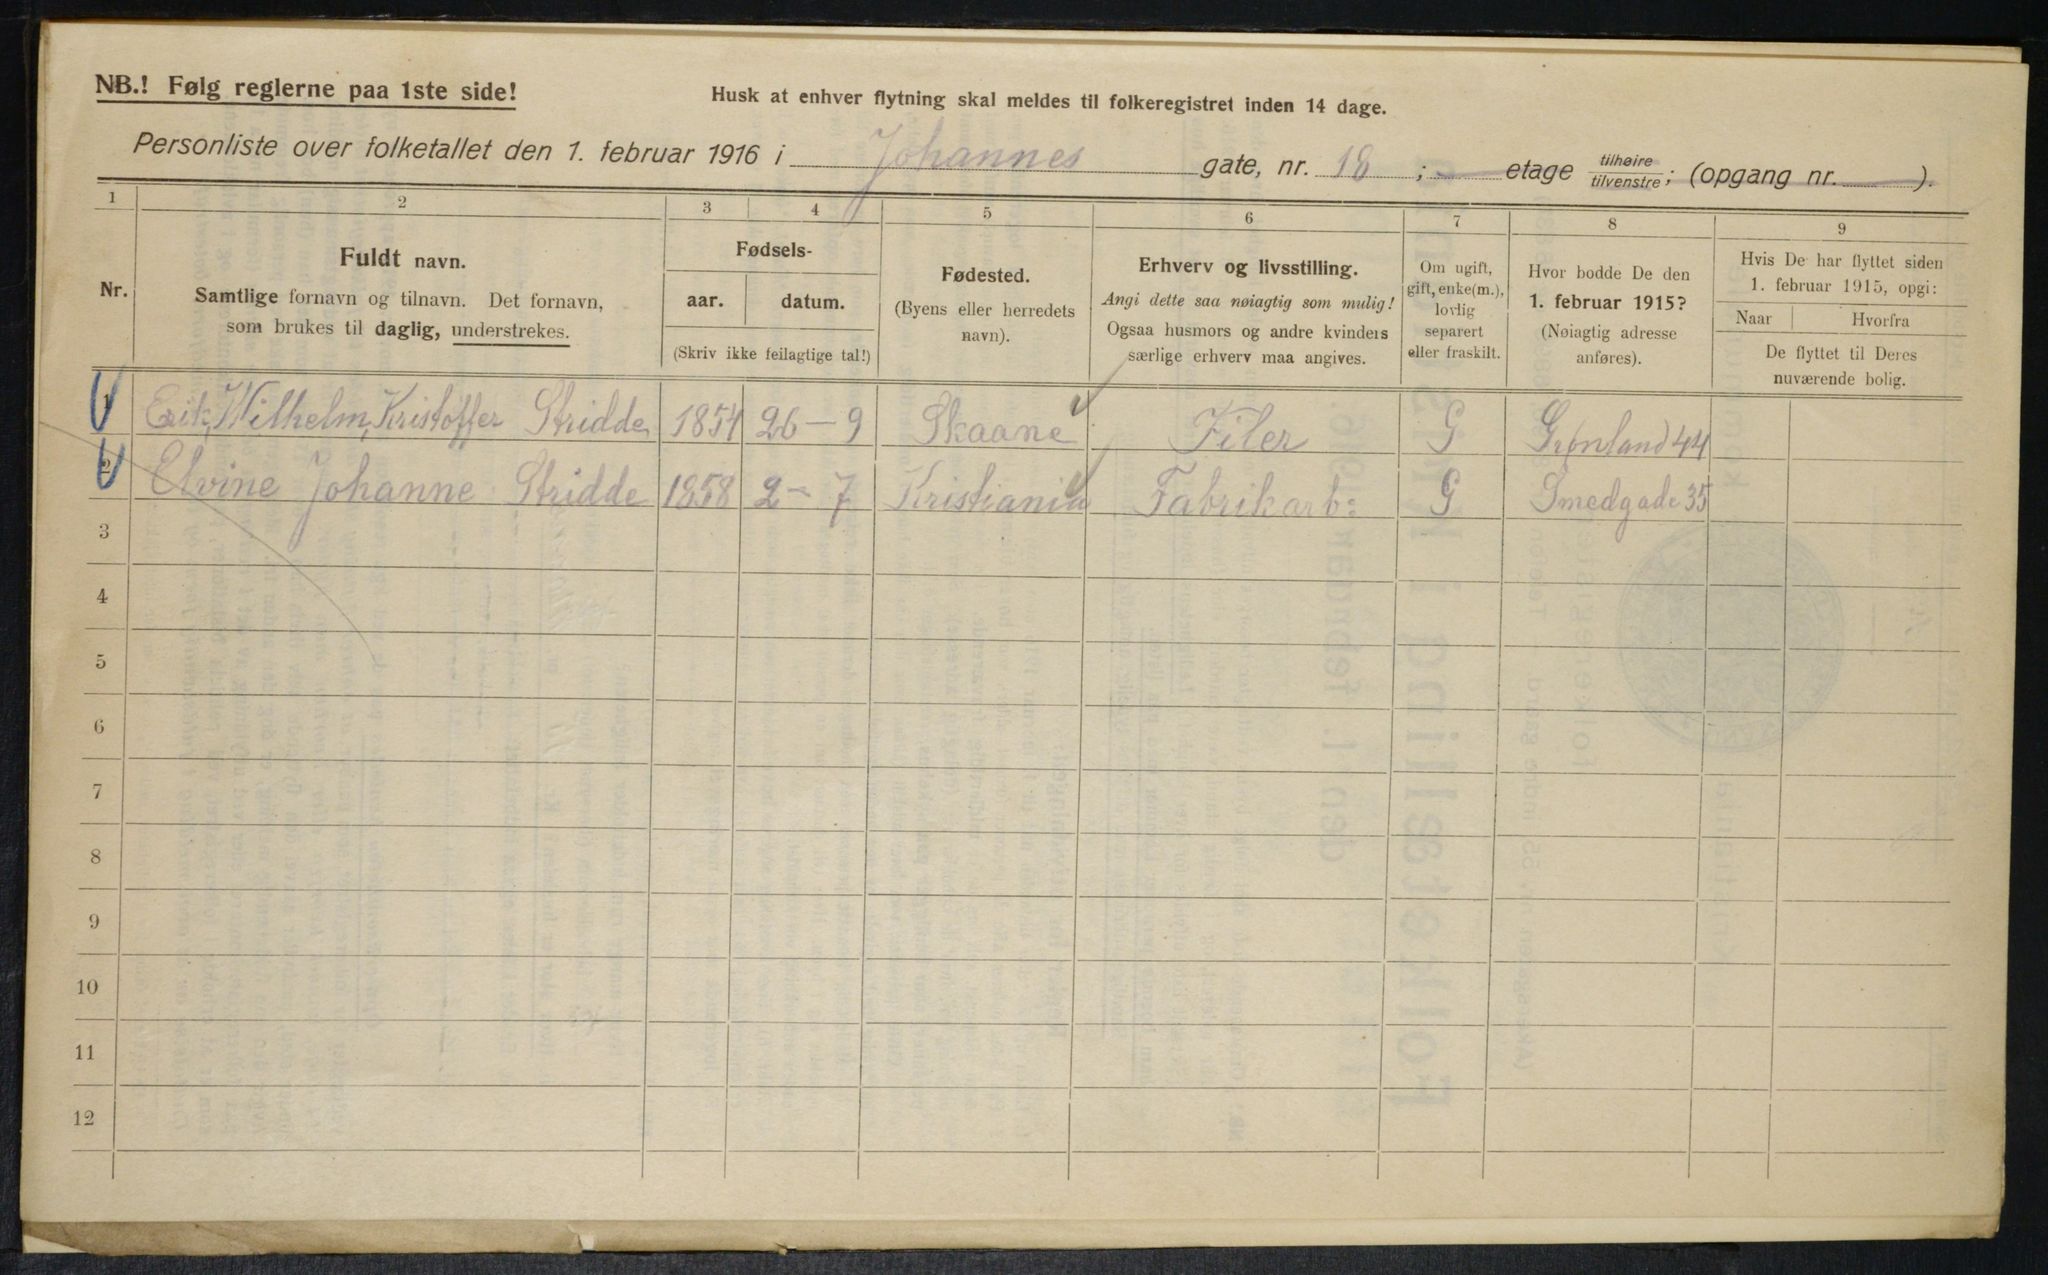 NB.! Følg reglerne paa 1ste side!
Husk at enhver flytning skal meldes til folkeregistret inden 14 dage.
Personliste over folketallet den 1. februar 1916 i Johannes gate, nr. 18 ; etage tilhøire tilvenstre ; (opgang nr. ).
1 2 3 4 5 6 7 8 9
Nr.
Fuldt navn.
Samtlige fornavn og tilnavn. Det fornavn,
som brukes til daglig, understrekes.
Fødsels-
aar. datum.
(Skriv ikke feilagtige tal!)
Fødested.
(Byens eller herredets
navn).
Erhverv og livsstilling.
Angi dette saa nøiagtig som mulig!
Ogsaa husmors og andre kvinders
særlige erhverv maa angives.
Om ugift,
gift, enke(m.),
lovlig
separert
eller fraskilt.
Hvor bodde De den
1. februar 1915?
(Nøiagtig adresse
anføres).
Hvis De har flyttet siden
1. februar 1915, opgi:
Naar Hvorfra
De flyttet til Deres
nuværende bolig.
1 Erik, Wilhelm, Kristoffer Stridde 1854 26-9 Skaane Filer G Grønland 44
2 Elvine Johanne Stridde 1858 2-7 Kristiania Fabrikarb: G Smedgade 35
3
4
5
6
7
8
9
10
11
12